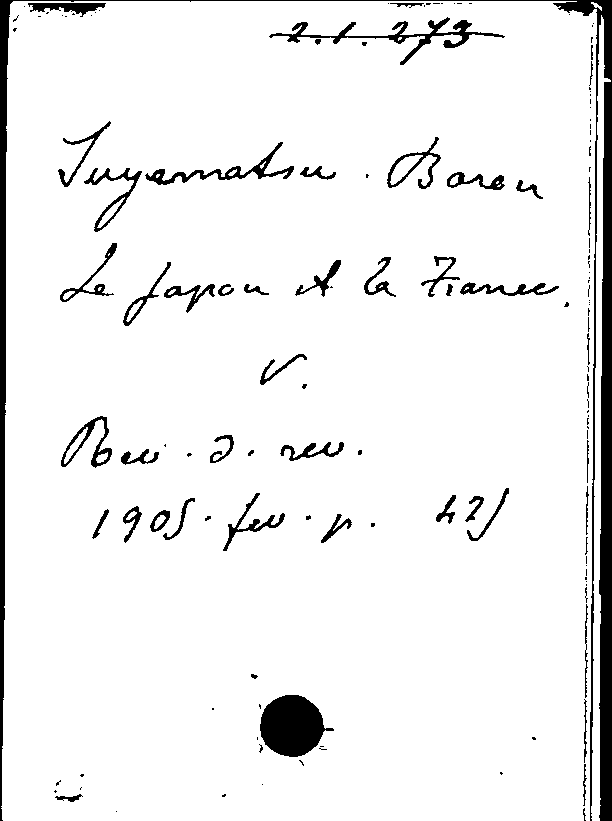 2.1.273
Suyematsu. Baron
Le Japon et la France.
V.
Rev. d. rev.
1905. fev. p. 425